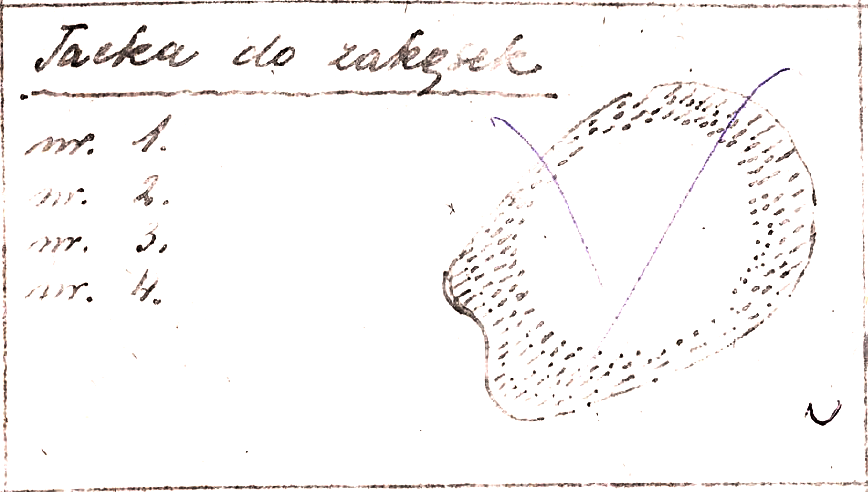 Tacka do zakąsek
nr. 1.
nr. 2.
nr. 3.
nr. 4.